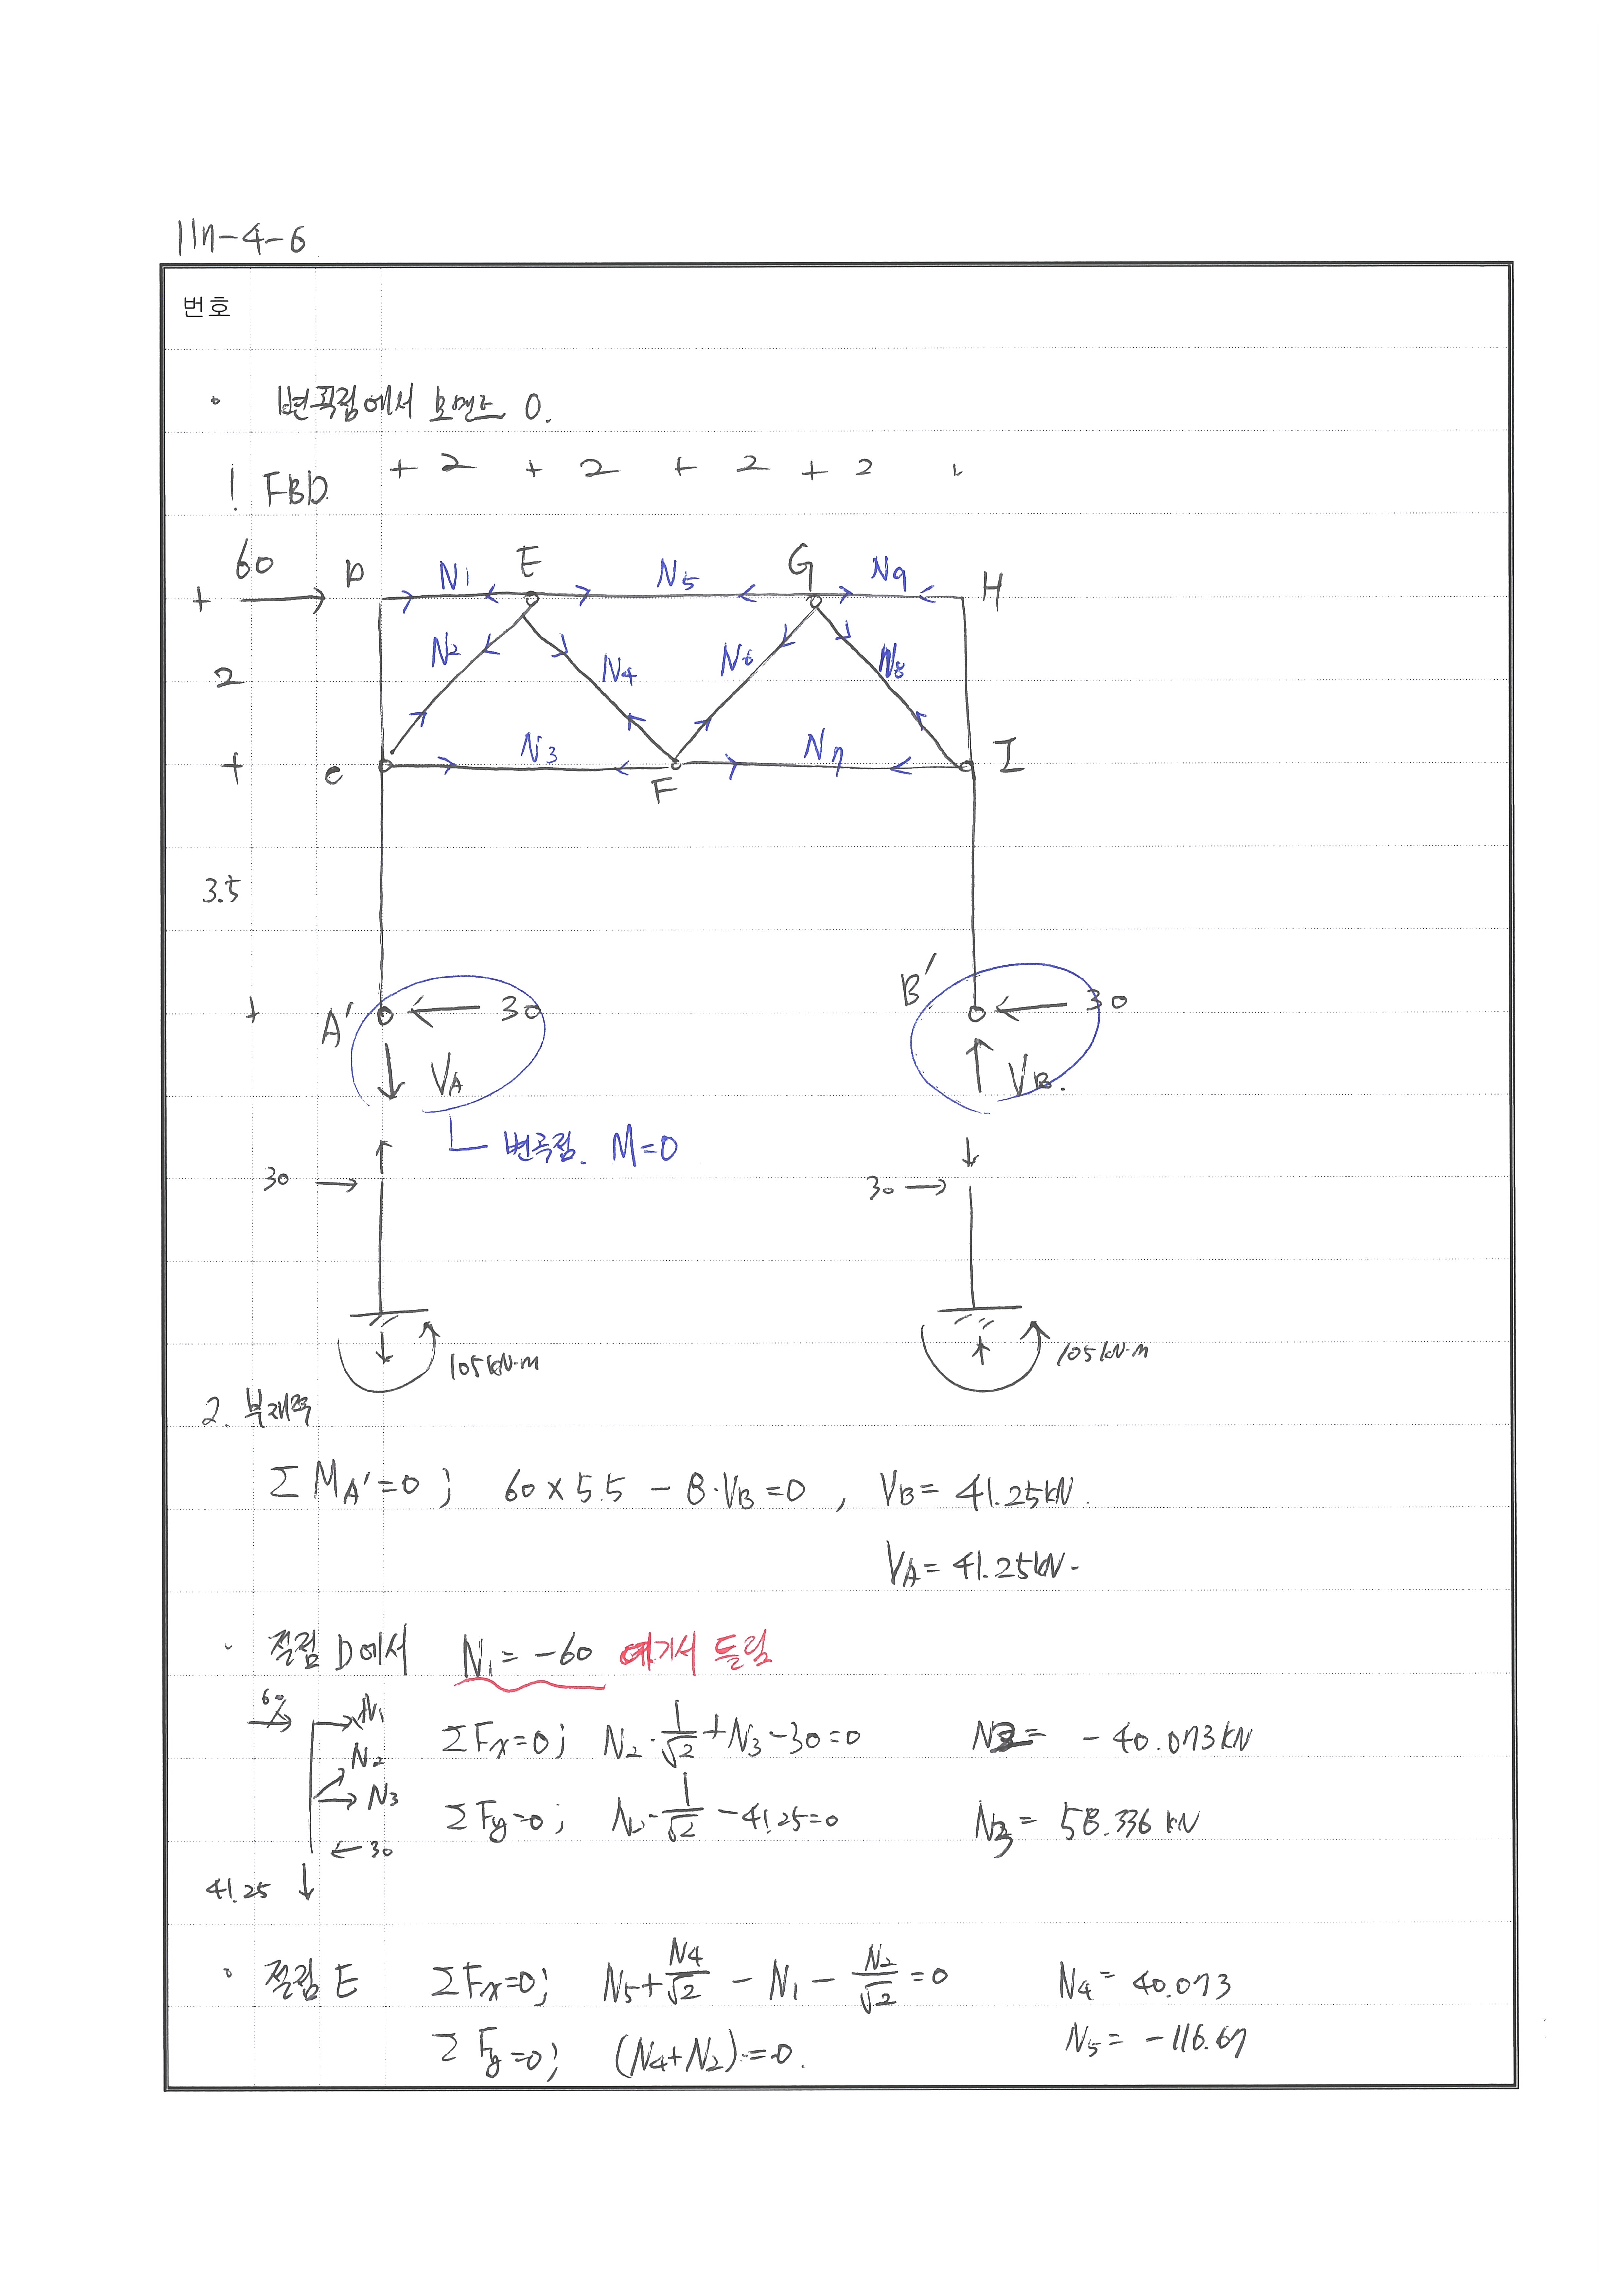 117-4-6
번호
• 변곡점에서 모멘트 0.
1 FBD
+ 2 + 2 + 2 + 2
60
D
N1
E
N5
G
N9
H
+
2
N2
N4
N6
N8
+
C
N3
F
N7
I
3.5
+
A'
30
VA
B'
30
VB.
변곡점. M=0
30
30
105kN·m
105kN·m
2. 부재력
ΣMA'=0 ; 60×5.5 - 8·VB=0 , VB= 41.25kN.
VA= 41.25kN.
· 절점 D에서 N1= -60 여기서 틀림
60 N1
N2
N3
30
41.25
ΣFx=0; N2·1/√2+N3-30=0 N2= -40.073kN
ΣFy=0; N2·1/√2 -41.25=0 N3= 58.336kN
· 절점 E ΣFx=0; N5+N4/√2 - N1 - N2/√2=0 N4= 40.073
ΣFy=0; (N4+N2)=0. N5= -116.67